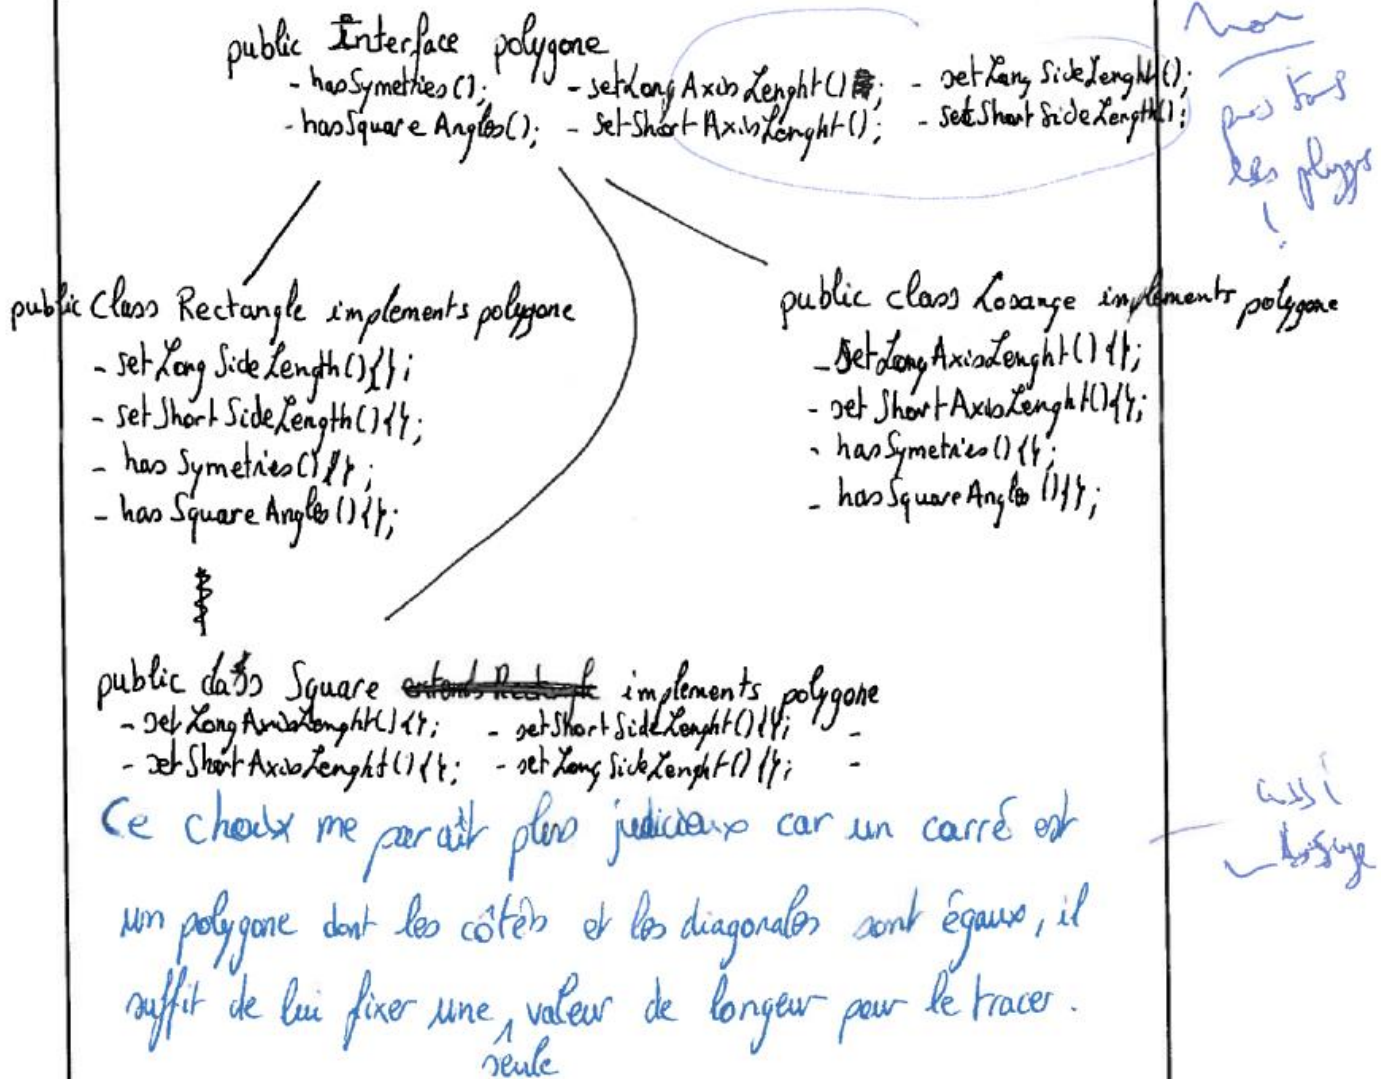 public Interface polygone
- hasSymetries(); - setLongAxisLenght(); - setLong SideLenght();
- hasSquare Angles(); - setShort-AxisLenght(); - setShort SideLength();
non
pas tous
les
!
public Class Rectangle implements polygone
- setLong SideLength(){};
- setShort SideLength(){};
- has Symetries(){};
- has Square Angles(){};
public class Losange implements polygone
- setLongAxisLenght(){};
- set Short-AxisLenght(){};
- hasSymetries(){};
- hasSquare Angles(){};
public class Square extends Rectangle implements polygone
- setLongAxisLenght(){}; - setShort SideLenght(){}; -
- setShort AxisLenght(){}; - set Long SideLenght(){}; -
Ce choix me paraît plus judicieux car un carré est
un polygone dont les côtés et les diagonales sont égaux, il
suffit de lui fixer une seule valeur de longeur pour le tracer.
aussi
losange